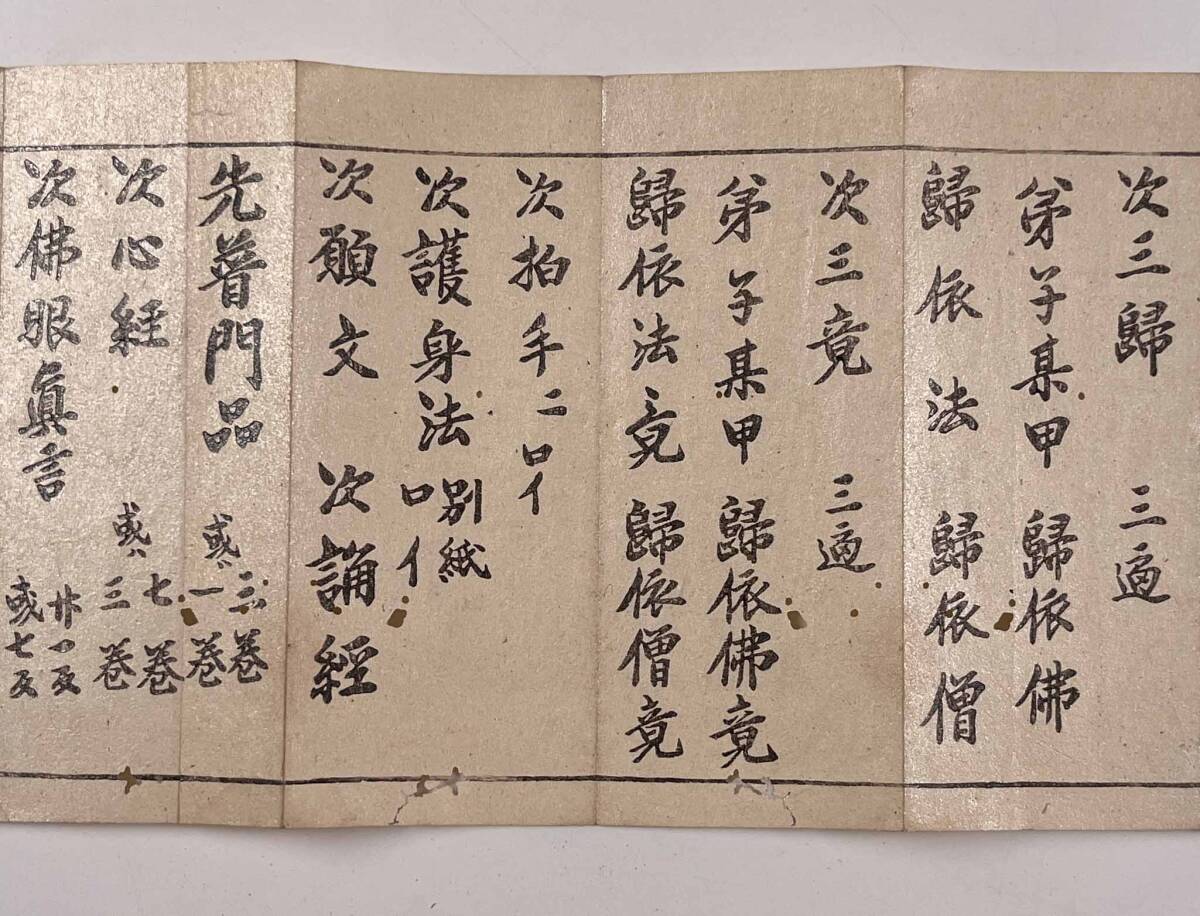 次三歸　三遍
弟子某甲　歸依佛
歸依法　歸依僧
次三竟　三遍
弟子某甲　歸依佛竟
歸依法竟　歸依僧竟
次拍手二口イ
次護身法　別紙口イ
次願文　次誦經
先普門品　三巻或ハ一巻
次心経　七巻或ハ三巻
次佛眼眞言　廿一反或七反